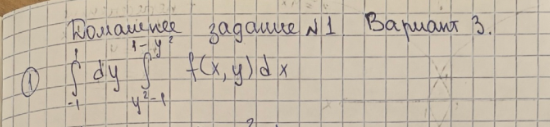 Домашнее задание №1 Вариант 3.
① ∫_{-1}^{1} dy ∫_{y²-1}^{1-y²} f(x,y)dx